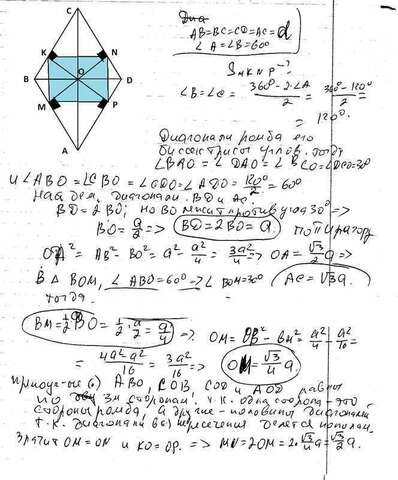 C
K
N
B
O
D
M
P
A
AB=BC=CD=AC=d
∠A=∠B=60°
S MKNP -?
∠B=∠C= (360°-2·∠A)/2 = (360°-120°)/2 =
= 120°.
Диагонали ромба его
биссектрисы углов. тогда
∠BAO=∠DAO=∠BCO=∠DCO=30°
и ∠ABO=∠CBO=∠CDO=∠ADO=120°/2=60°
Найдем диагонали BD и AC.
BD=2BO; но BO лежит против угла 30° =>
BO=a/2 => BD=2BO=a. по Пифагору
OA²=AB²-BO²=a²-a²/4=3a²/4 => OA=√3/2 a =>
В △ BOM, ∠ABO=60° => ∠BOM=30° AC=√3a.
тогда
BM=1/2 BO=1/2·a/2=a/4 => OM=OB²-BM²=a²/4-a²/16=
=4a²-a²/16=3a²/16 => OM=√3/4 a.
ABO, COB, COD и AOD равны
по 3м сторонам, т.к. одна сторона - это
стороны ромба, а другие - половины диагоналей
т.к. диагонали в (·) пересечения делятся пополам.
Значит OM=ON и KO=OP. => MN=2OM=2·√3/4 a=√3/2 a.